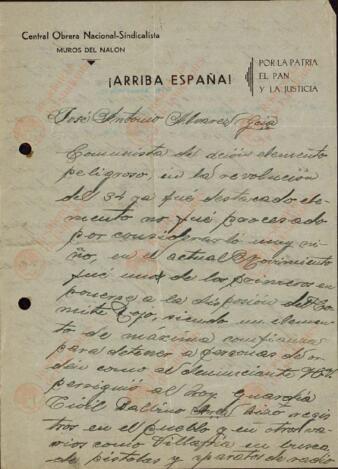 Central Obrera Nacional-Sindicalista
MUROS DEL NALON
¡ARRIBA ESPAÑA!
POR LA PATRIA
EL PAN
Y LA JUSTICIA
José Antonio Alvarez
Comunista de acción elemento
peligroso, en la revolución
del 34 ya fué destacado ele-
mento no fué procesado
por considerarlo muy ni-
ño, en el actual Movimiento
fué uno de los primeros en
ponerse a la disposión del Co-
mite Rojo, siendo un elemen-
to de máxima confianza
para detener a personas de or-
den como al denunciante
persiguió al hoy Guardia
Civil Balbino hizo regis-
tros en el pueblo y en otros va-
rios como en busca
de pistolas y aparatos de radio